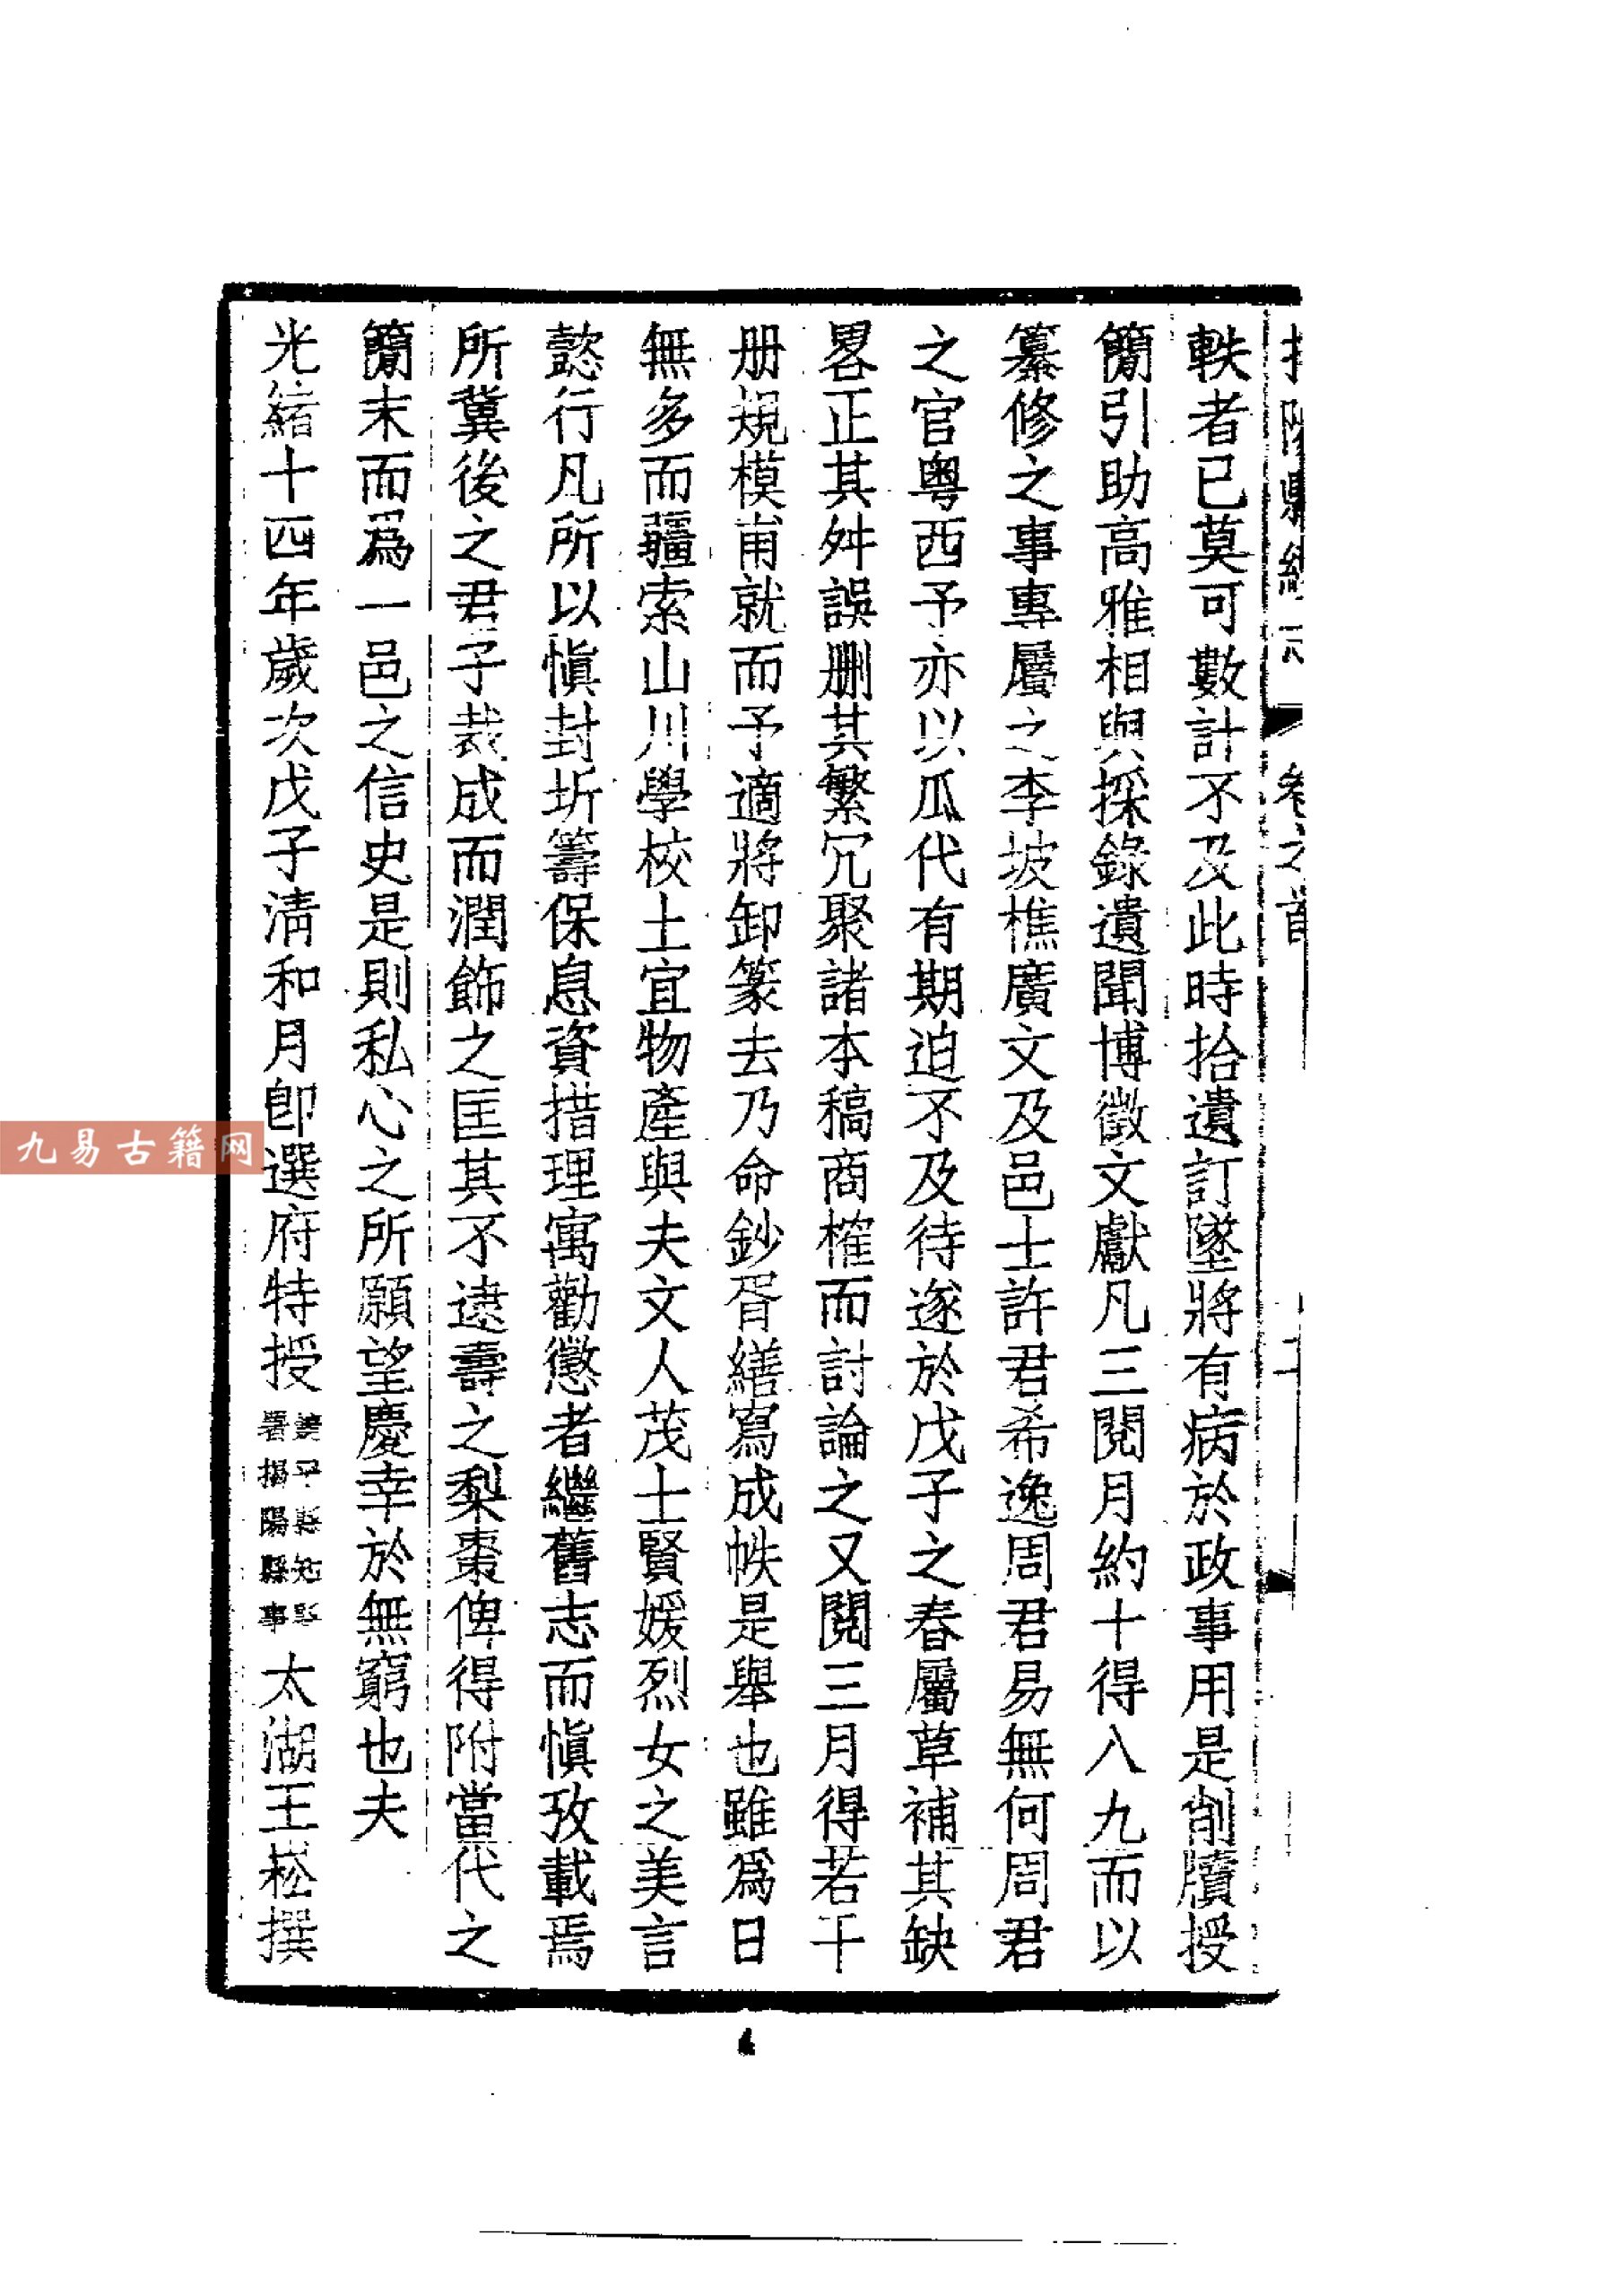 軼者已莫可數計不及此時拾遺訂墜將有病於政事用是削牘授
簡引助高雅相與採錄遺聞博徵文獻凡三閱月約十得八九而以
纂修之事專屬之李坡樵廣文及邑士許君希逸周君易無何周君
之官粵西予亦以瓜代有期迫不及待遂於戊子之春屬草補其缺
畧正其舛誤删其繁冗聚諸本稿商榷而討論之又閱三月得若干
册規模甫就而予適將卸篆去乃命鈔胥繕寫成帙是舉也雖爲日
無多而疆索山川學校土宜物產與夫文人茂士賢媛烈女之美言
懿行凡所以愼封圻籌保息資措理寓勸懲者繼舊志而愼攷載焉
所冀後之君子裁成而潤飾之匡其不逮壽之梨棗俾得附當代之
簡末而爲一邑之信史是則私心之所願望慶幸於無窮也夫
光緒十四年歲次戊子清和月卽選府特授饒平縣知縣署揭陽縣事太湖王崧撰
卷之首
九易古籍网